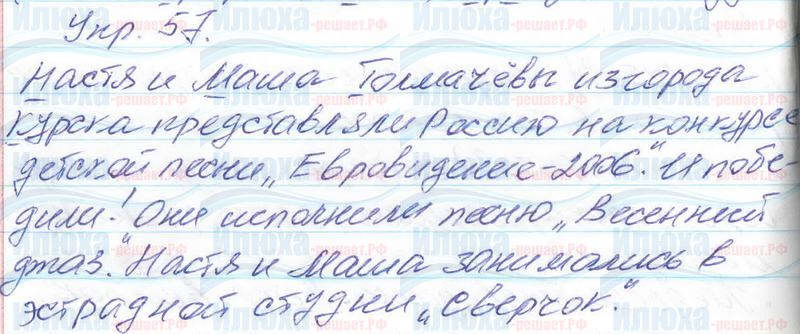 Упр. 57.
Настя и Маша Толмачёвы из города
Курска представляли Россию на конкурсе
детской песни „Евровидение-2006". И побе-
дили! Они исполнили песню „Весенний
джаз". Настя и Маша занимались в
эстрадной студии „Сверчок".